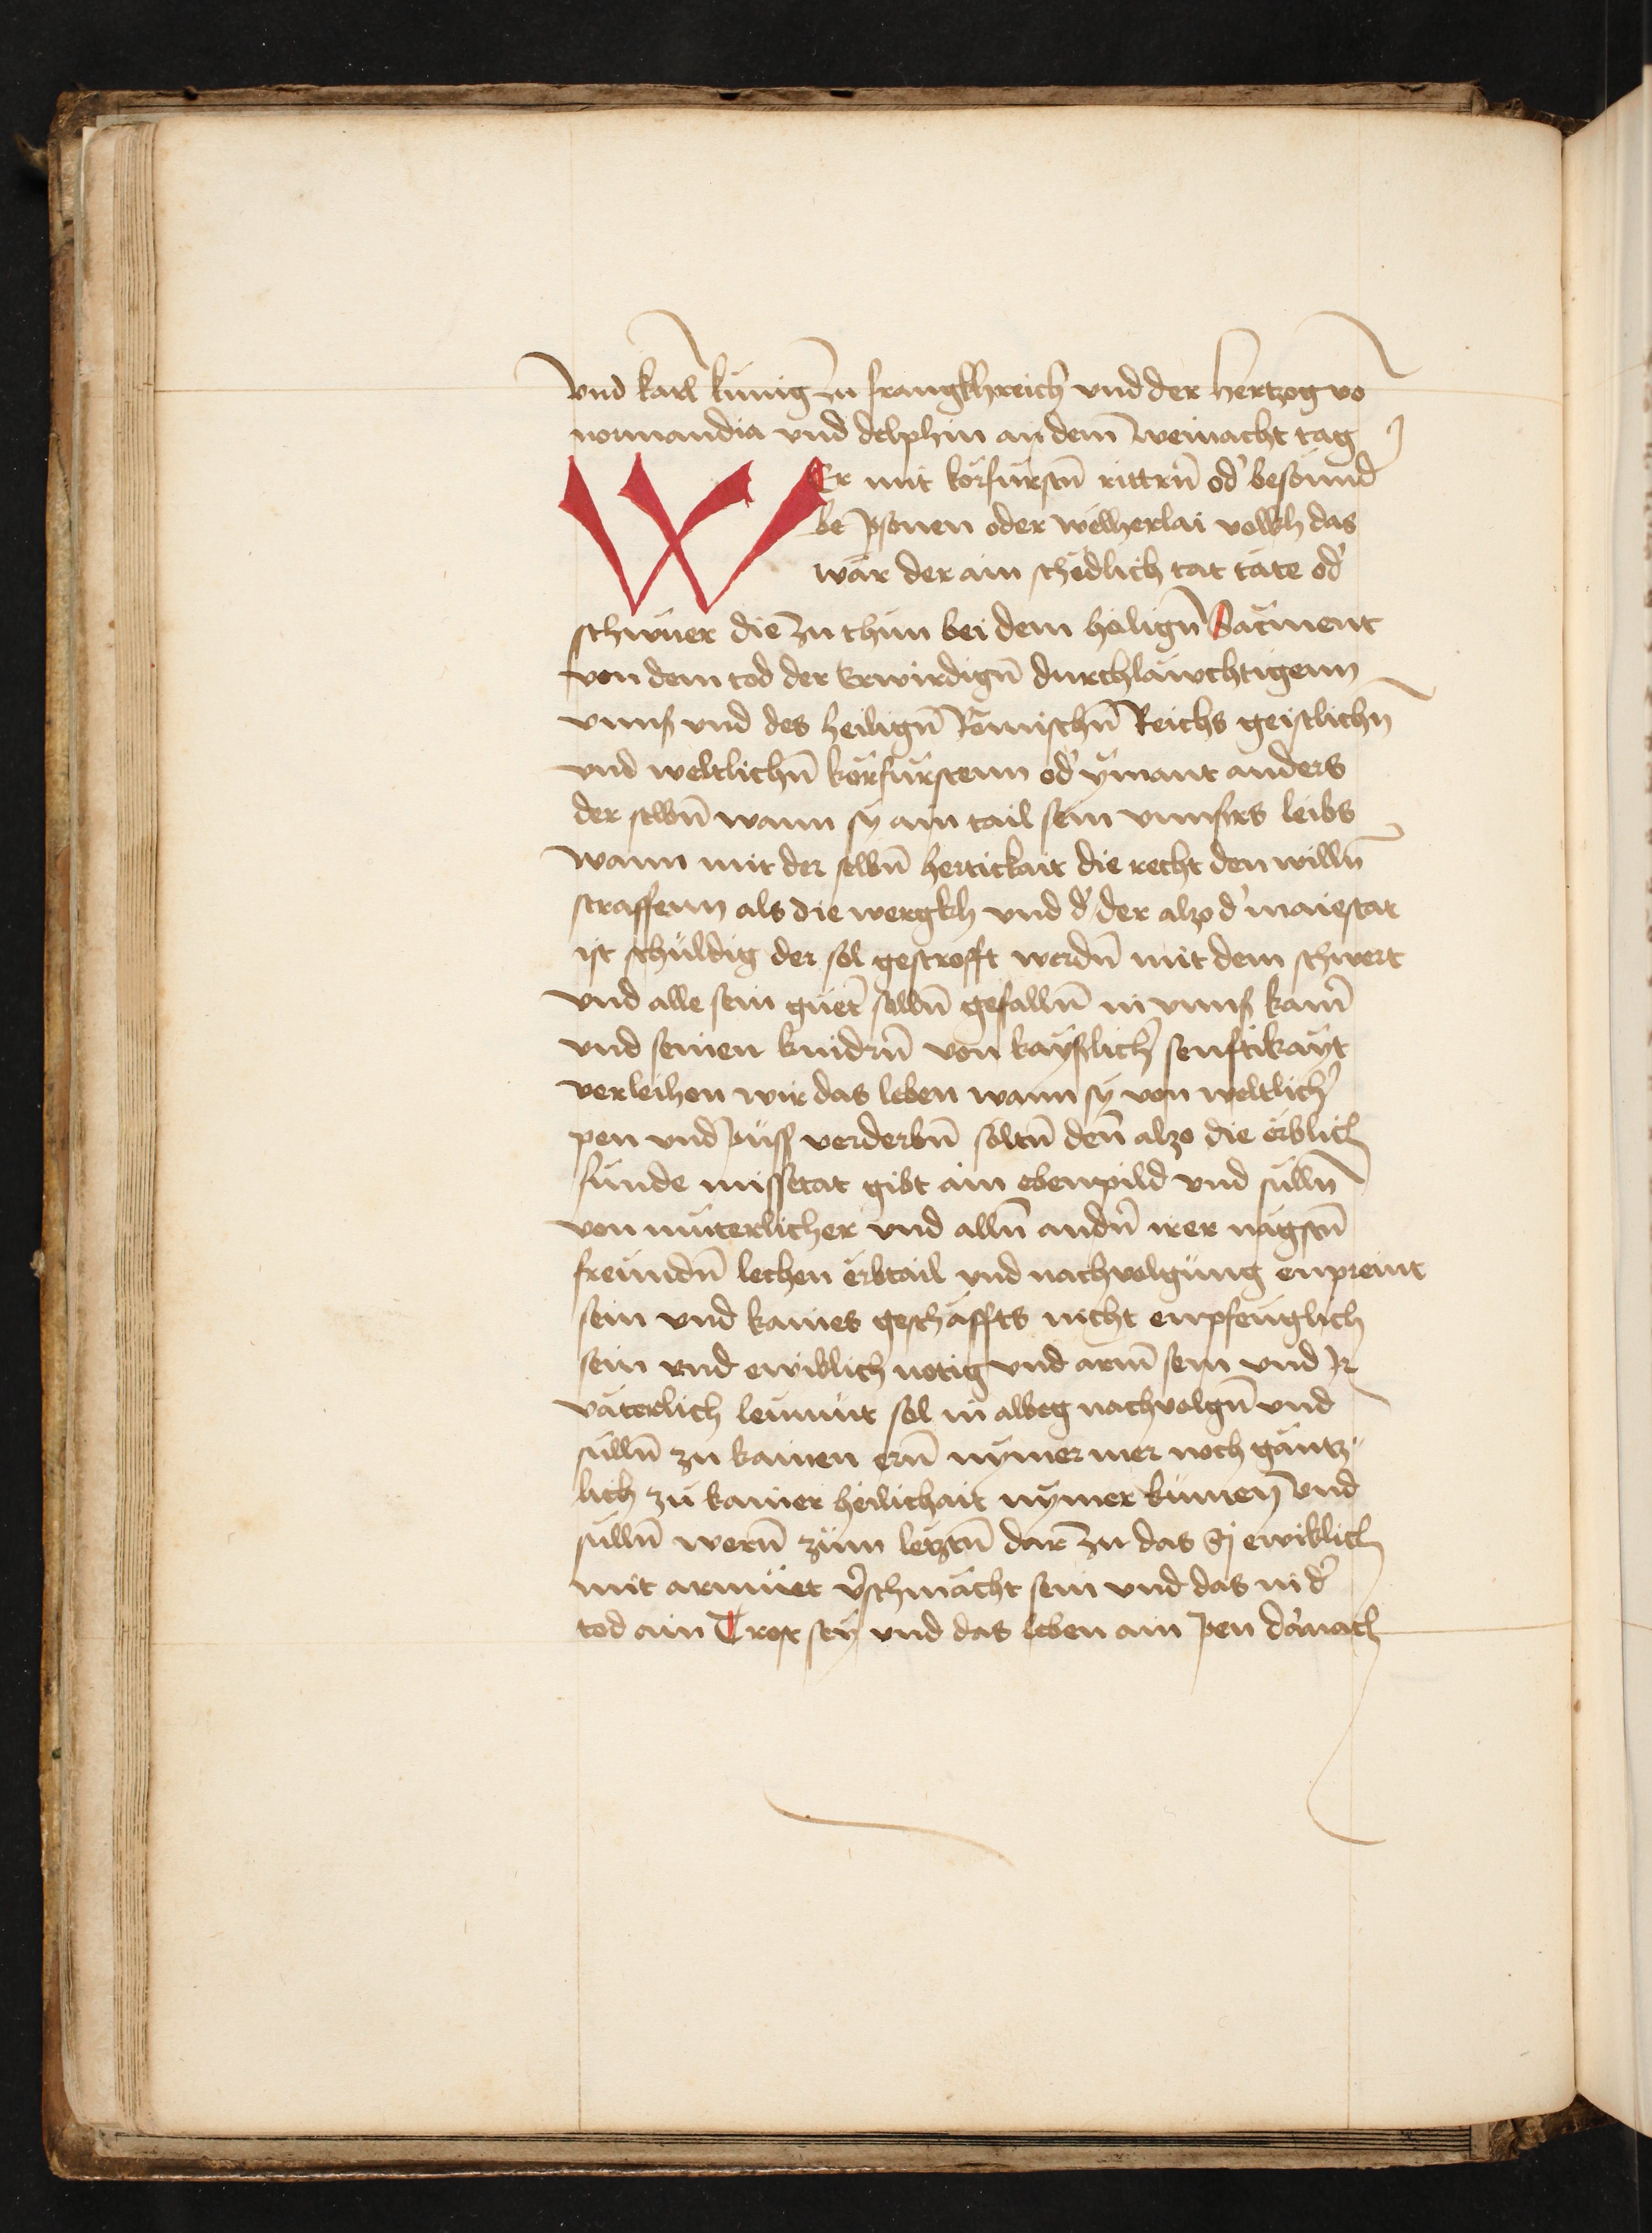 vnd karl kunig zu frangkhreich vnd der hertzog vo
normandia vnd delphin an dem̄ weinacht tag
WEr mit korfurstn̄ rittrn̄ od' besunnd
be psonen oder welherlai volkh das
wär der ain schedlich tat täte od'
schwuer die zu thun bei dem heilign̄ Sacment
von dem tod der Erwirdign̄ durchläwchtigenn
vnns vnd des heilign̄ Römischn̄ Reichs geistlichn̄
vnd weltlichn̄ körfürstenn od' ÿmant anders
der selbn̄ wann sy ain tail sein vnnsers leibs
wann mit der selbn̄ hertickait die recht den willn̄
straffenn als die wergkh vnd d' der alzo d' maiestat
ist schuldig der sol gestrofft werdn̄ mit dem schwert
vnd alle sein guet' solln̄ gefalln̄ in vnns kam̄
vnd seinen kindrn̄ von kayslich' senftikayt
verleihen wir das leben wann sÿ von weltlich'
pen vnd puss verderbn̄ soltn̄ den̄ alzo die erblich
sunde missetat gibt ain ebenpild vnd sulln̄
von muterlicher vnd alln̄ andn̄ irer nägstn̄
freundn̄ lechen erbtail vnd nachvolgung enpremt
sein vnd kaines geschäffts nicht enpfenglich
sein vnd ewiklich notig vnd arm̄ sein vnd Ir
väterlich leumut sol in albeg nachvolgn̄ vnd
sulln̄ zu kainen ern̄ nymer mer noch gäntz-
lich zu kainer heilichait nÿmer kumen vnd
sulln̄ wern̄ zum letztn̄ dar zu das Sj ewiklich
mit armuet v'schmächt sein vnd das in d'
tod ain Trost seÿ vnd das leben ain pen darnach